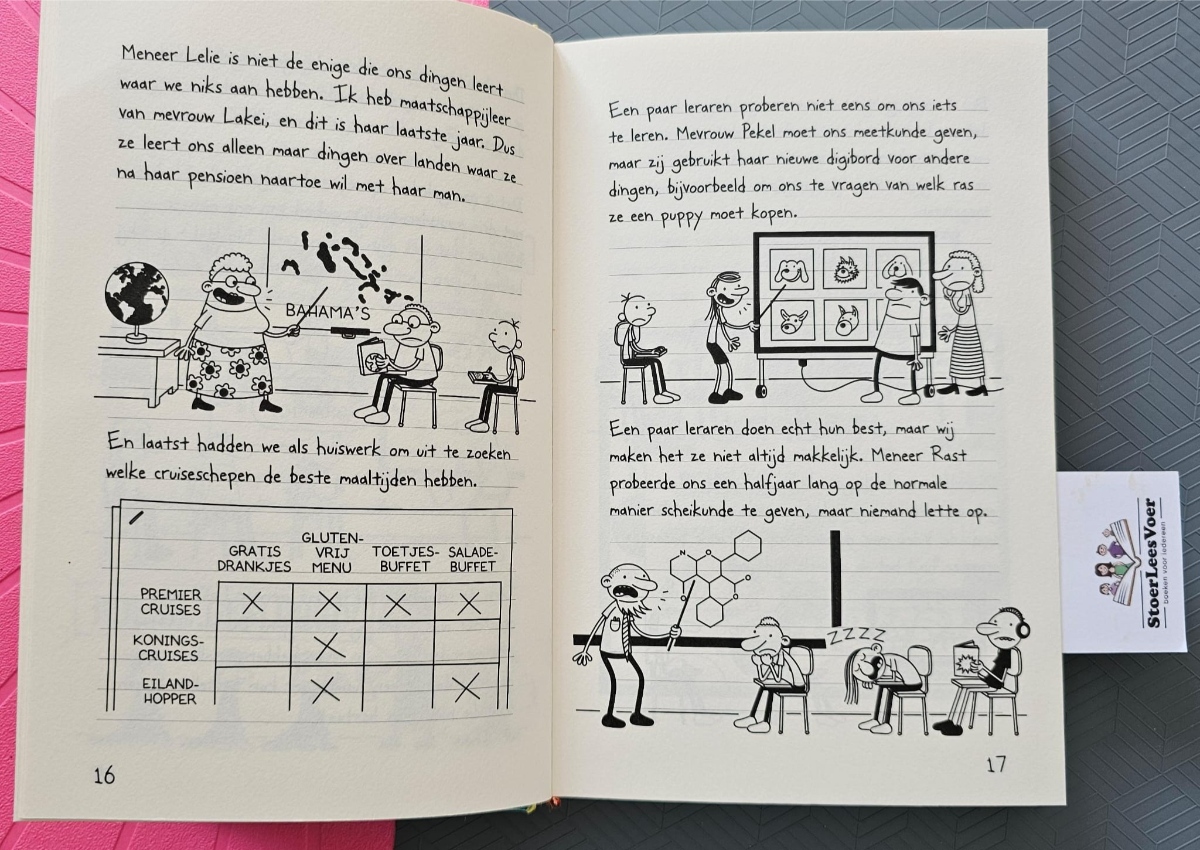 Meneer Lelie is niet de enige die ons dingen leert
waar we niks aan hebben. Ik heb maatschappijleer
van mevrouw Lakei, en dit is haar laatste jaar. Dus
ze leert ons alleen maar dingen over landen waar ze
na haar pensioen naartoe wil met haar man.
BAHAMA'S
En laatst hadden we als huiswerk om uit te zoeken
welke cruiseschepen de beste maaltijden hebben.
GRATIS DRANKJES
GLUTEN-
VRIJ
MENU
TOETJES-
BUFFET
SALADE-
BUFFET
PREMIER
CRUISES
KONINGS-
CRUISES
EILAND-
HOPPER
16
Een paar leraren proberen niet eens om ons iets
te leren. Mevrouw Pekel moet ons meetkunde geven,
maar zij gebruikt haar nieuwe digibord voor andere
dingen, bijvoorbeeld om ons te vragen van welk ras
ze een puppy moet kopen.
Een paar leraren doen echt hun best, maar wij
maken het ze niet altijd makkelijk. Meneer Rast
probeerde ons een halfjaar lang op de normale
manier scheikunde te geven, maar niemand lette op.
N
O
O
O
O
ZZZZ
17
StoerLeesVoer
boeken voor iedereen